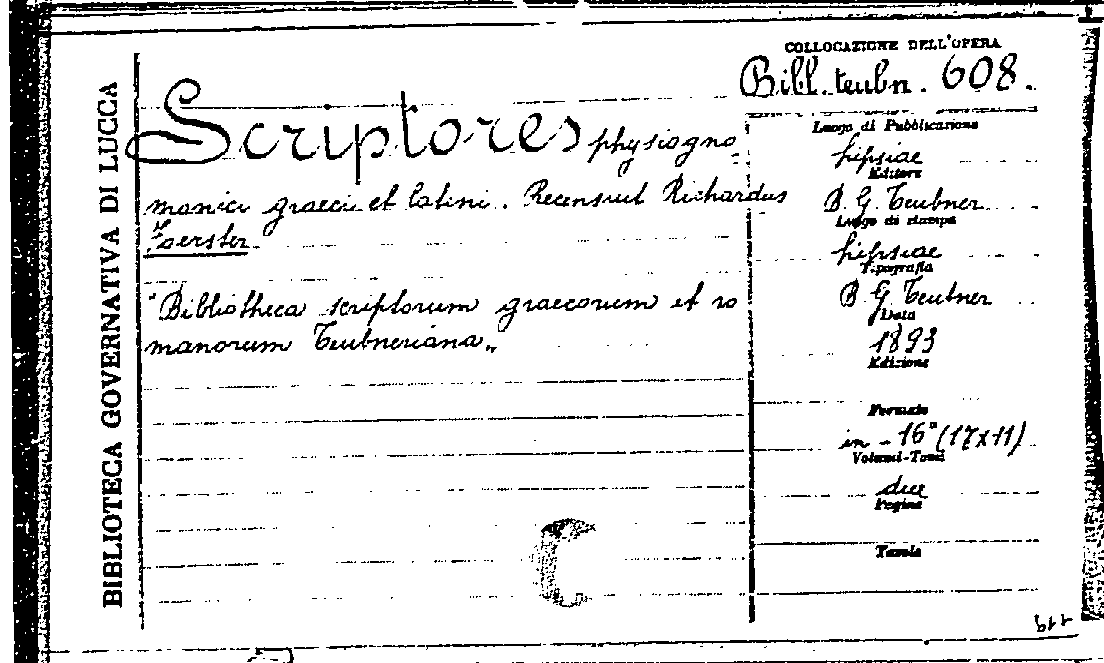 BIBLIOTECA GOVERNATIVA DI LUCCA
COLLOCAZIONE DELL'OPERA
Bibl. teubn. 608.
Scriptores physiogno-
monici graeci et latini. Recensuit Richardus
Foerster
"Bibliotheca scriptorum graecorum et ro
manorum Teubneriana„
Luogo di Pubblicazione
Lipsiae
Editore
B. G. Teubner
Luogo di stampa
Lipsiae
Tipografia
B G Teubner
Data
1893
Edizione
Formato
in-16° (17x11)
Volumi-Tomi
due
Pagine
Tavole
C